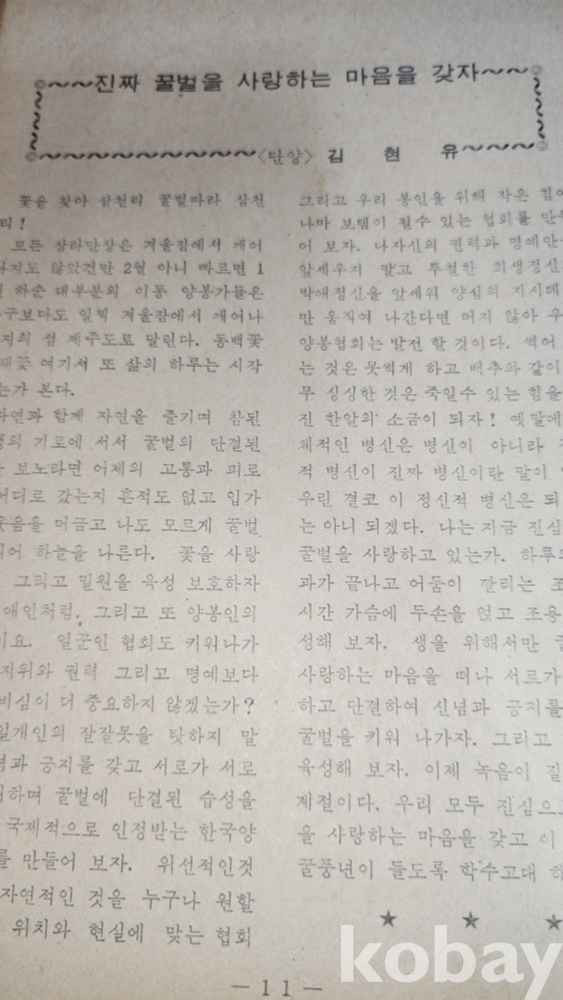 진짜 꿀벌을 사랑하는 마음을 갖자
<단양> 김 현 유
꽃을 찾아 삼천리 꿀벌따라 삼천
리!
모든 삼라만상은 겨울잠에서 깨어
나지도 않았건만 2월 아니 빠르면 1
월 하순 대부분의 이동 양봉가들은
누구보다도 일찍 겨울잠에서 깨어나
지의 섬 제주도로 달린다. 동백꽃
여기서 또 삶의 하루는 시작
는가 본다.
자연과 함께 자연을 즐기며 참된
생의 기로에 서서 꿀벌의 단결된
보노라면 어제의 고통과 피로
어디로 갔는지 흔적도 없고 입가
웃음을 머금고 나도 모르게 꿀벌
되어 하늘을 나른다. 꽃을 사랑
그리고 밀원을 육성 보호하자
애인처럼. 그리고 또 양봉인의
이요. 일꾼인 협회도 키워나가
지위와 권력 그리고 명예보다
비심이 더 중요하지 않겠는가?
일개인의 잘잘못을 탓하지 말
념과 긍지를 갖고 서로가 서로
하며 꿀벌에 단결된 습성을
국제적으로 인정받는 한국양
를 만들어 보자. 위선적인것
자연적인 것을 누구나 원할
위치와 현실에 맞는 협회
그리고 우리 봉인을 위해 작은 힘이
나마 보탬이 될수 있는 협회를 만들
어 보자. 나자신의 권력과 명예만
앞세우지 말고 투철한 희생정신
박애정신을 앞세워 양심의 지시에
만 움직여 나간다면 머지 않아 우
양봉협회는 발전 할 것이다. 썩어
는 것은 못썩게 하고 배추와 같이
무 싱싱한 것은 죽일수 있는 힘을
진 한알의 소금이 되자! 옛말에
체적인 병신은 병신이 아니라
적 병신이 진짜 병신이란 말이
우린 결코 이 정신적 병신은 되
는 아니 되겠다. 나는 지금 진심
꿀벌을 사랑하고 있는가. 하루의
과가 끝나고 어둠이 깔리는 조
시간 가슴에 두손을 얹고 조용
성해 보자. 생을 위해서만
사랑하는 마음을 떠나 서로가
하고 단결하여 신념과 긍지를
꿀벌을 키워 나가자. 그리고
육성해 보자. 이제 녹음이 짙
계절이다. 우리 모두 진심으
을 사랑하는 마음을 갖고 이
꿀풍년이 들도록 학수고대 하
★ ★ ★
— 11 —
kobay